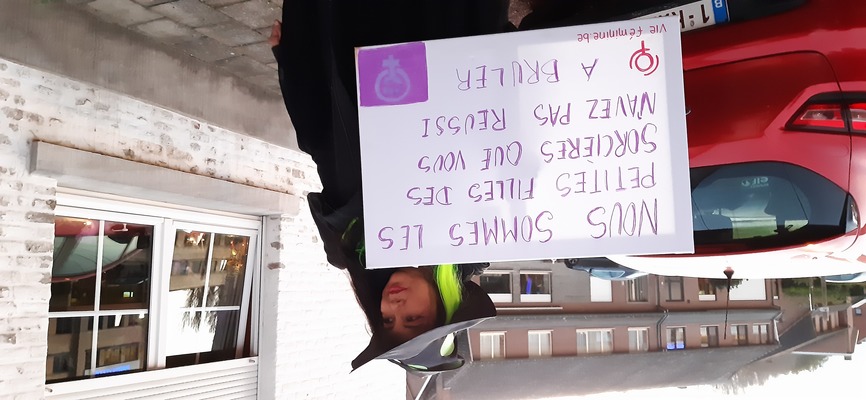 NOUS SOMMES LES
PETITES FILLES DES
SORCIÈRES QUE VOUS
N'AVEZ PAS REUSSI
A BRULER
Vie Féminine.be